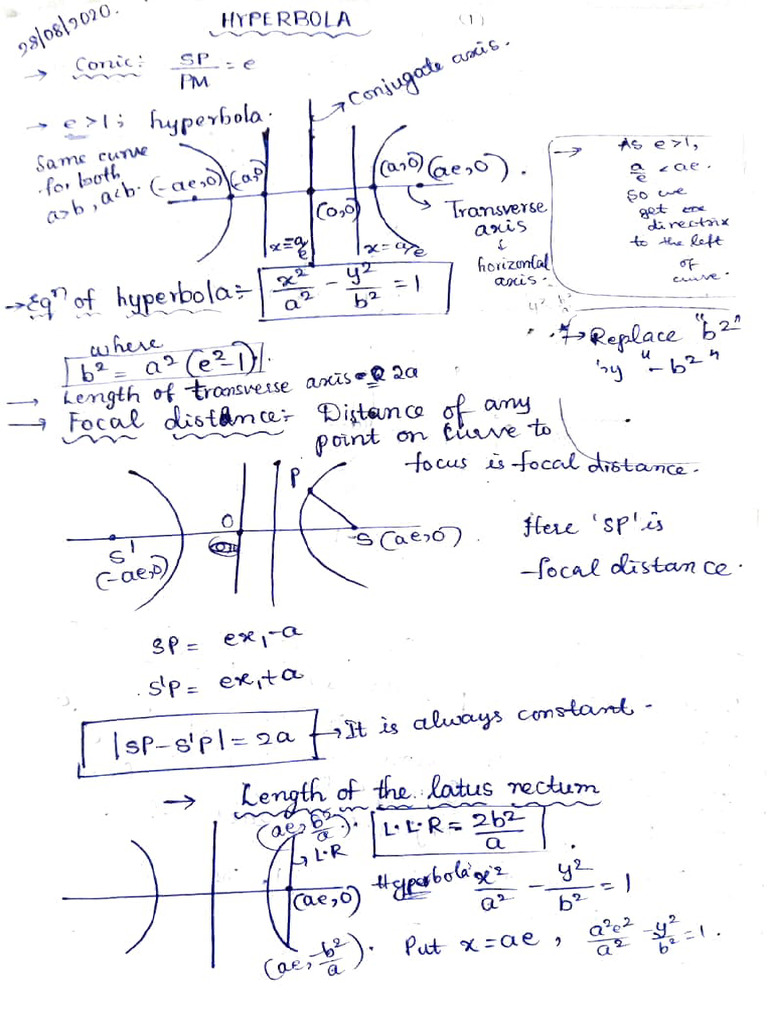 28/08/2020.
HYPERBOLA (1)
→ Conic: SP/PM = e
→ Conjugate axis.
→ e>1; hyperbola.
Same curve
for both
a>b, a<b.
(-ae,0) (a,0) (0,0) (a,0) (ae,0).
x=-a/e x=a/e
Transverse
axis
↓
horizontal
axis.
→ As e>1,
a/e < ae.
So we
get one
directrix
to the left
of
curve.
→ Eqⁿ of hyperbola:- x²/a² - y²/b² = 1
where
b² = a²(e²-1).
→ Replace "b²"
by "-b²"
→ Length of transverse axis = 2a
→ Focal distance:- Distance of any
point on curve to
focus is focal distance.
P
O
S'
(-ae,0)
S(ae,0).
Here 'SP' is
focal distance.
SP = ex₁-a
S'P = ex₁+a
|SP-S'P| = 2a → It is always constant.
→ Length of the latus rectum
(ae, b²/a). L.L.R = 2b²/a
L.R
(ae,0) Hyperbola: x²/a² - y²/b² = 1
(ae, -b²/a). Put x=ae, a²e²/a² - y²/b² = 1.